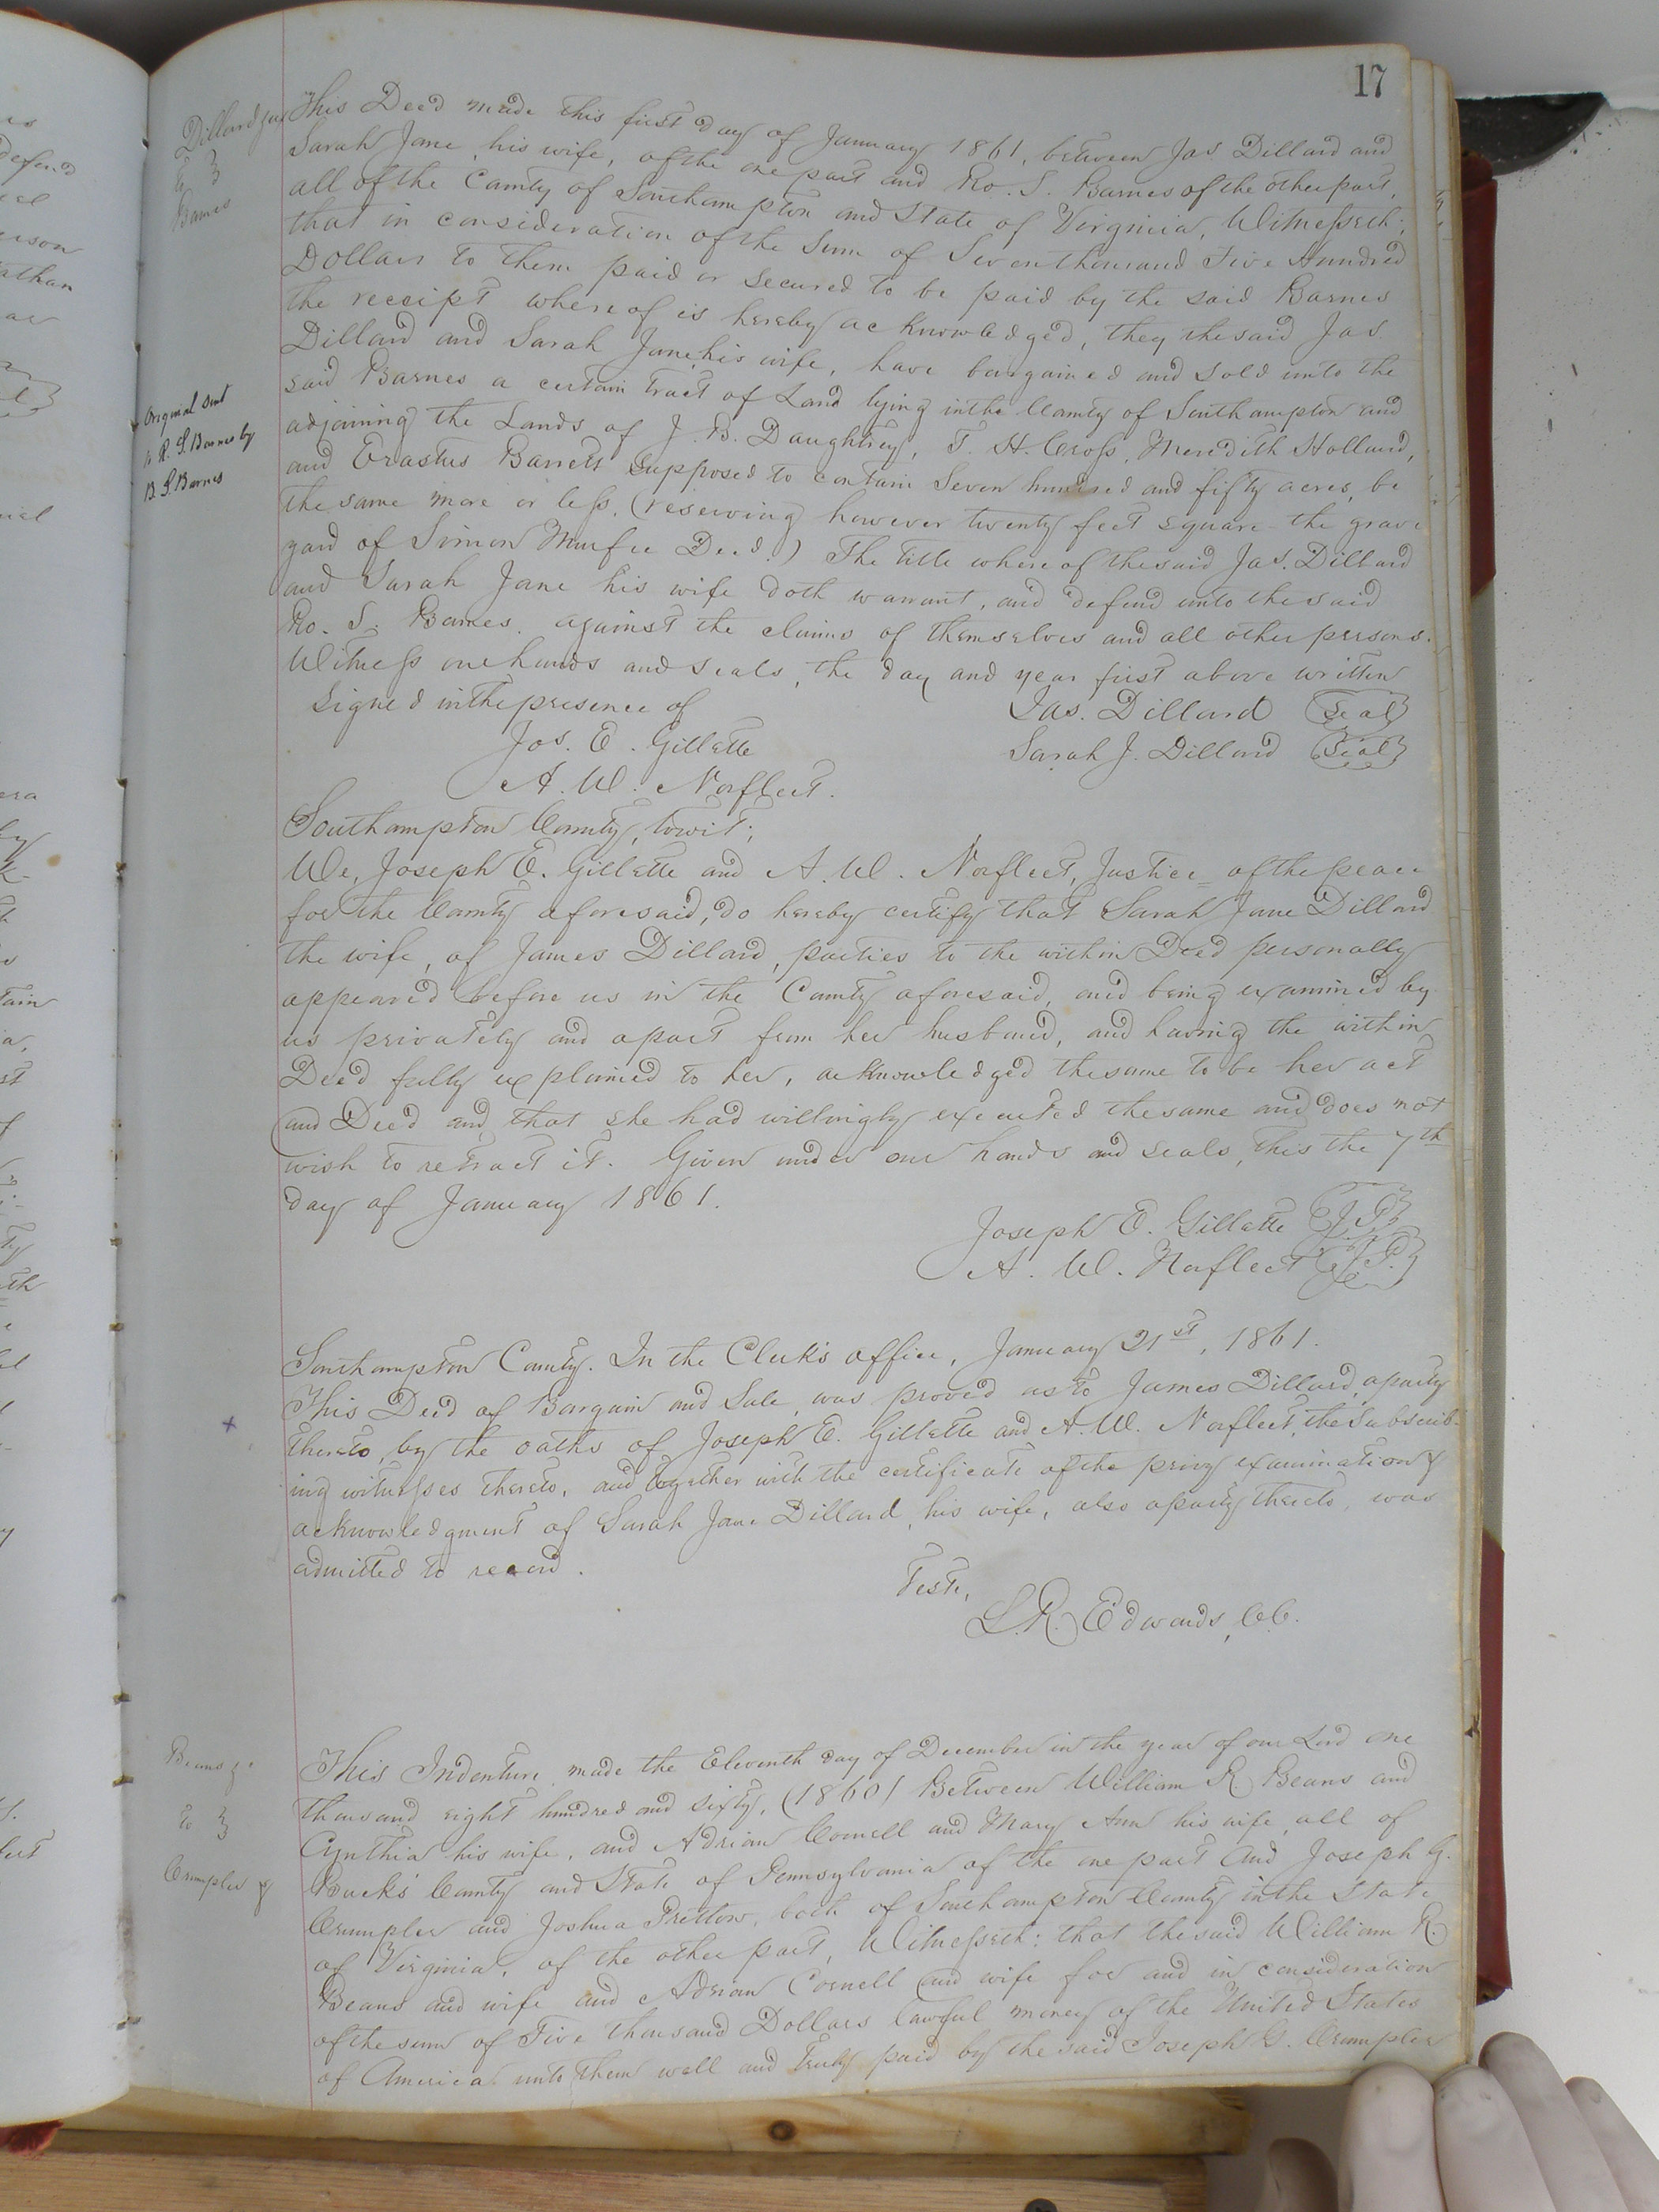 17
Dillard Jas
to }
Barnes
This Deed made this first day of January 1861, between Jas Dillard and
Sarah Jane, his wife, of the one part and Ro. S. Barnes of the other part,
all of the County of Southampton and State of Virginia, Witnesseth;
that in consideration of the Sum of Seven thousand Five Hundred
Dollars to them paid or secured to be paid by the said Barnes
the receipt whereof is hereby acknowledged, they the said Jas.
Dillard and Sarah Jane, his wife, have bargained and sold unto the
said Barnes a certain tract of Land lying in the County of Southampton and
adjoining the Lands of J. B. Daughtrey, T. H. Cross, Meredith Holland,
and Erastus Barrett Supposed to contain Seven hundred and fifty acres, be
the same more or less, (reserving however twenty feet square the grave
yard of Simon Murfee Decd.) The title whereof the said Jas. Dillard
and Sarah Jane his wife doth warrant, and defend unto the said
Ro. S. Barnes. against the claims of themselves and all other persons.
Witness our hands and seals, the day and year first above written
Original Sent
to R. S. Barnes by
B. S. Barnes
Signed in the presence of
Jas. Dillard (Seal)
Jos. E. Gillette
Sarah J. Dillard (Seal)
A. W. Norfleet.
Southampton County, towit;
We, Joseph E. Gillette and A. W. Norfleet, Justice of the peace
for the County aforesaid, do hereby certify that Sarah Jane Dillard
the wife, of James Dillard, parties to the within Deed personally
appeared before us in the County aforesaid, and being examined by
us privately and apart from her husband, and having the within
Deed fully explained to her, acknowledged the same to be her act
and Deed and that she had willingly executed the same and does not
wish to retract it. Given under our hands and seals, this the 7th
day of January 1861.
Joseph E. Gillette (J.P.)
A. W. Norfleet (J.P.)
Southampton County. In the Clerk's office, January 21st, 1861.
This Deed of Bargain and Sale, was proved as to James Dillard, a party
thereto, by the oaths of Joseph E. Gillette and A. W. Norfleet, the Subscrib-
ing witnesses thereto, and together with the certificate of the privy examination &
acknowledgment of Sarah Jane Dillard, his wife, also a party thereto, was
admitted to record.
Teste,
L. R. Edwards, C.C.
Beans &c
to }
Crumpler &
This Indenture, made the Eleventh day of December in the year of our Lord one
thousand eight hundred and sixty, (1860) Between William R Beans and
Cynthia his wife, and Adrian Cornell and Mary Ann his wife, all of
Bucks County and State of Pennsylvania of the one part And Joseph G.
Crumpler and Joshua Pretlow, both of Southampton County in the State
of Virginia, of the other part, Witnesseth: that the said William R.
Beans and wife and Adrian Cornell and wife for and in consideration
of the sum of Five thousand Dollars lawful money of the United States
of America unto them well and truly paid by the said Joseph G. Crumpler